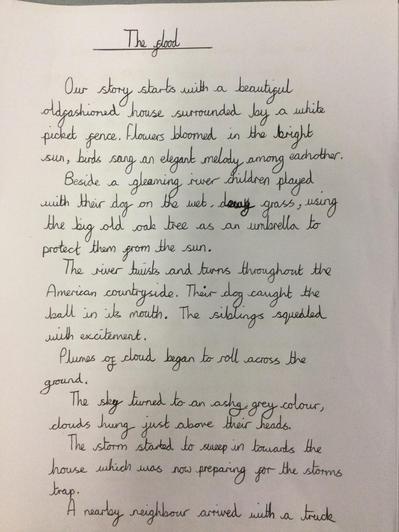 The flood
Our story starts with a beautiful
oldfashioned house surrounded by a white
picket fence. Flowers bloomed in the bright
sun, birds sang an elegant melody among eachother.
Beside a gleaming river children played
with their dog on the wet, grass, using
the big old oak tree as an umbrella to
protect them from the sun.
The river twists and turns throughout the
American countryside. Their dog caught the
ball in its mouth. The siblings squealed
with excitement.
Plumes of cloud began to roll across the
ground.
The sky turned to an ashy grey colour,
clouds hung just above their heads.
The storm started to sweep in towards the
house which was now preparing for the storms
trap.
A nearby neighbour arrived with a truck